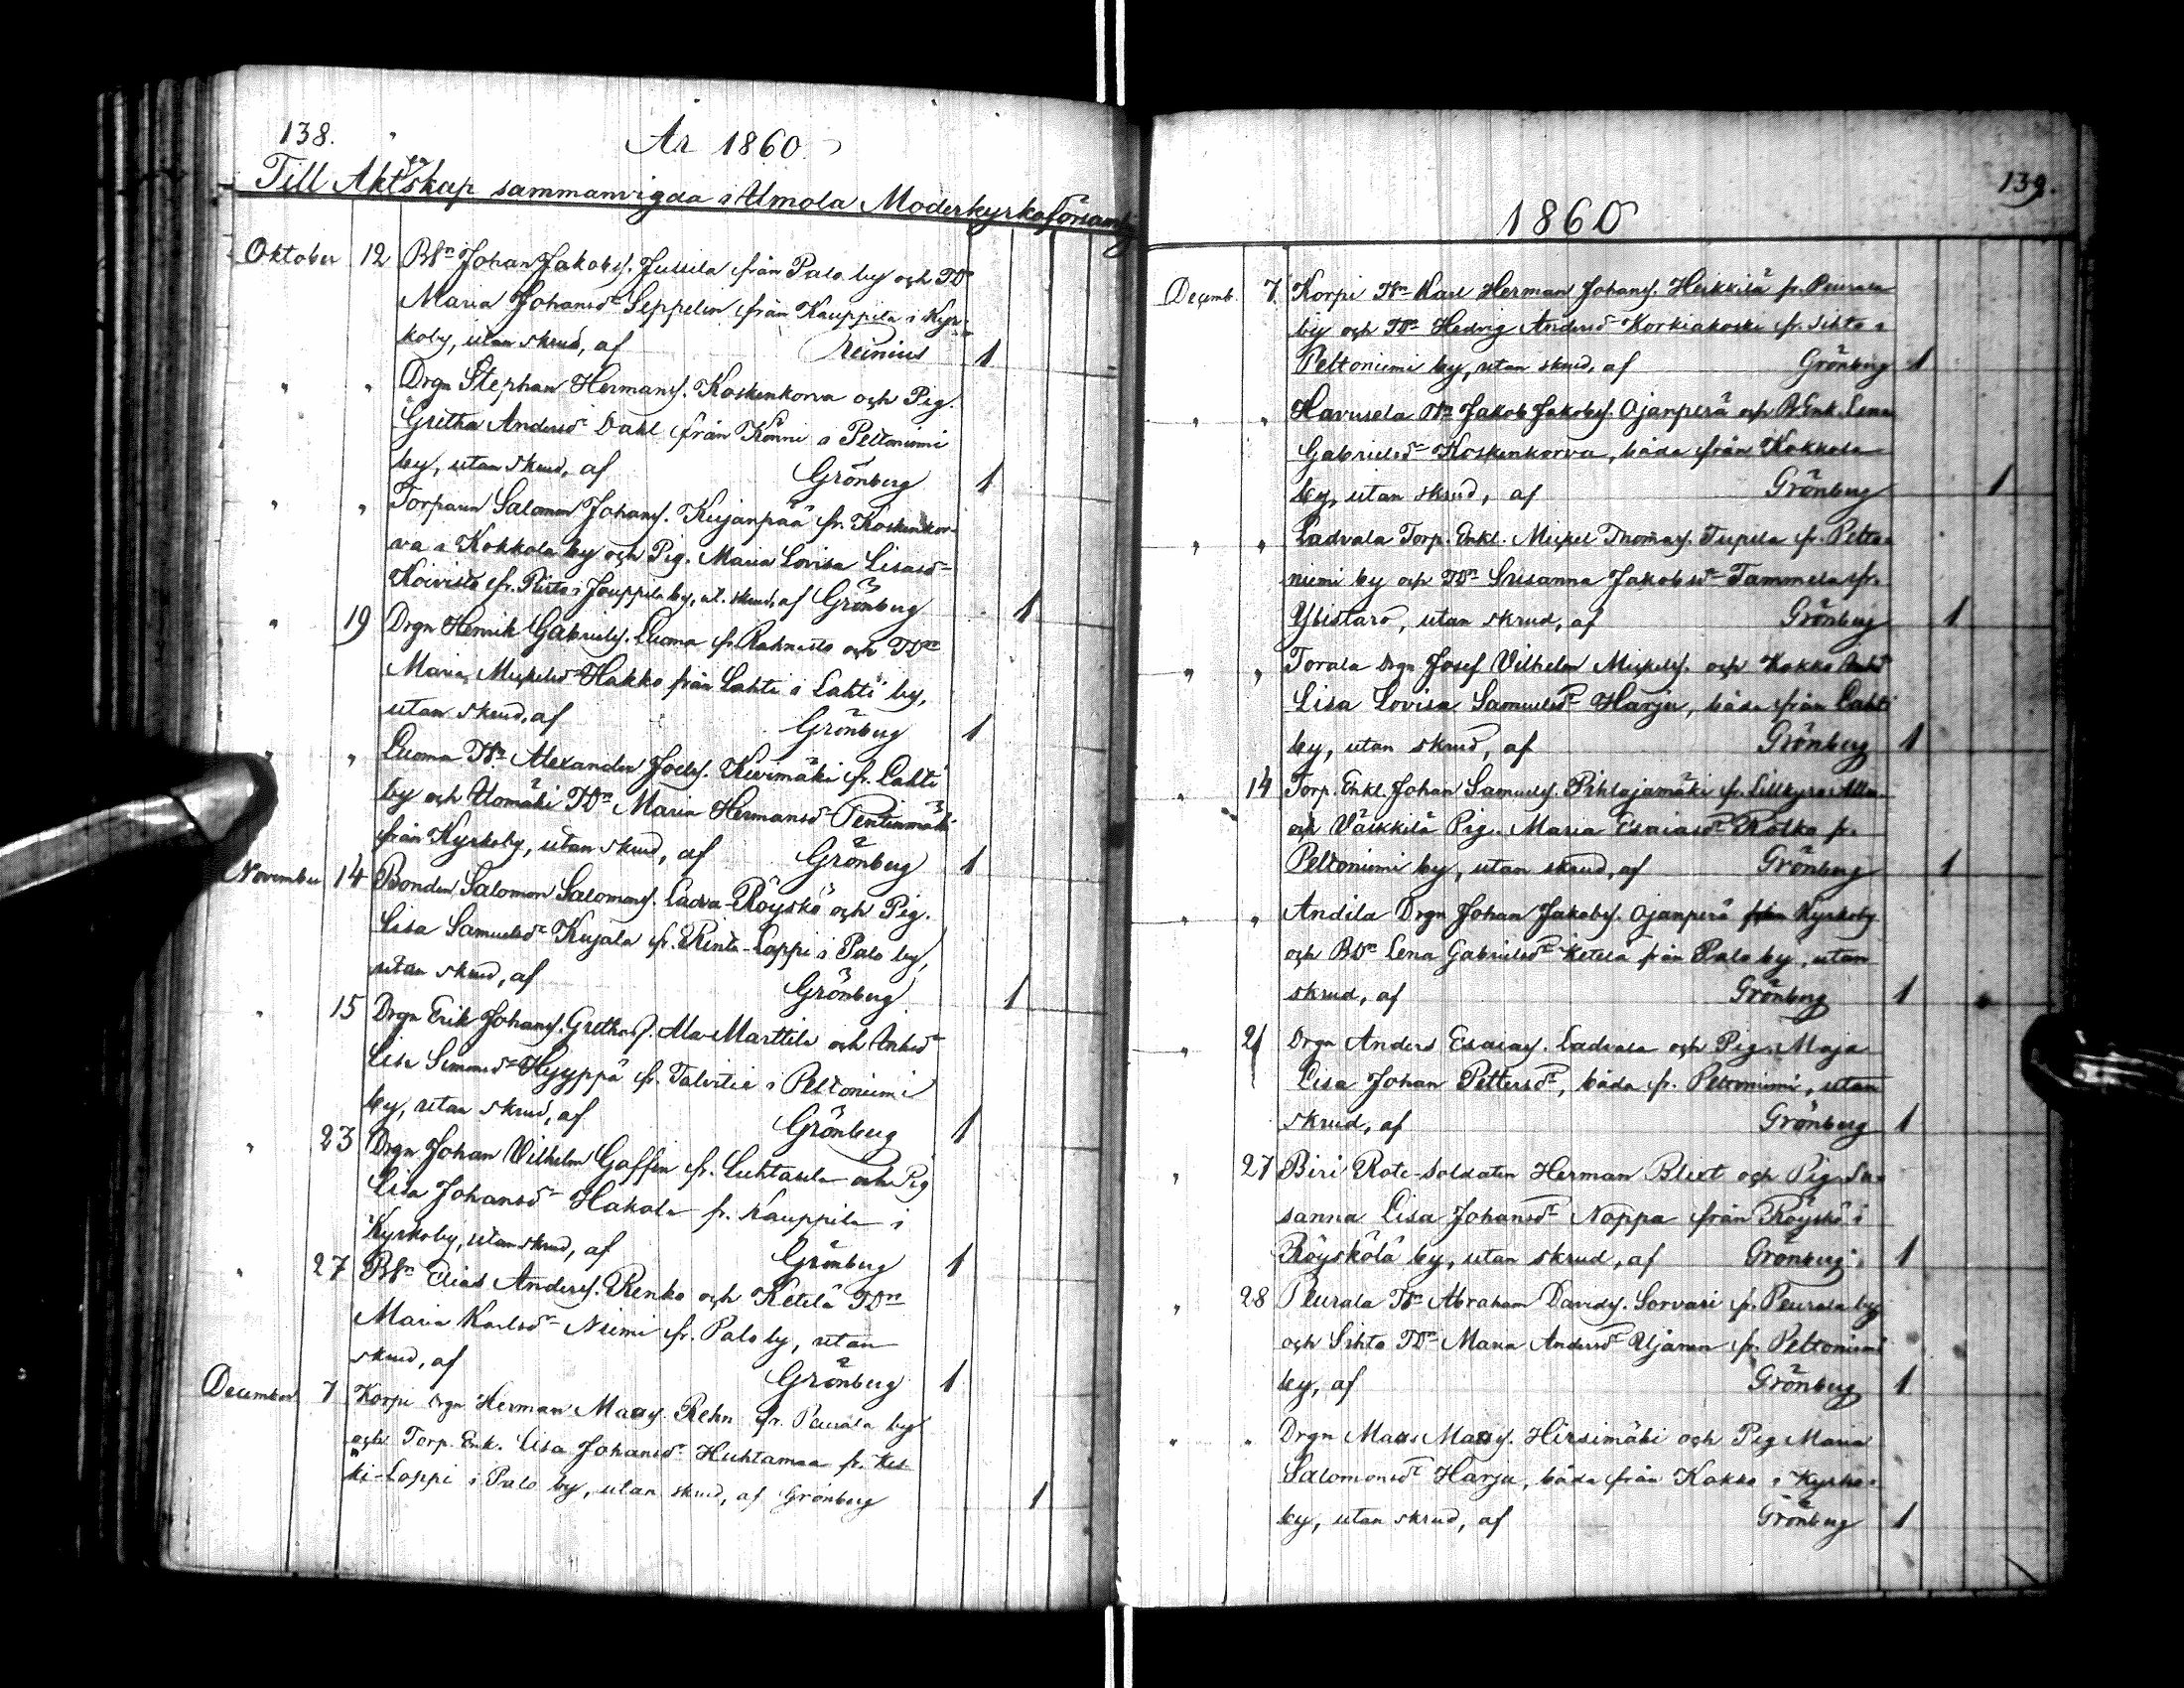 138.
År 1860.
Till Äktskap sammanvigda i Ilmola Moderkyrkoförsaml
Oktober 12 Bsn Johan Jakobs. Jussila från Palo by och TDr
Maria Johansdr Seppelin från Kauppila i Kyr-
koby, utan skrud, af Reinius 1
" " Drgn Stephan Hermans. Koskenkorva och Pig.
Gretha Andersdr Dahl från Könni i Peltoniemi
by, utan skrud, af Grönberg 1
" " Torparen Salomon Johans. Kujanpää fr. Koskenkor-
va i Kokkola by och Pig. Maria Lovisa Lisasdr
Koivisto fr. Risto i Jouppila by, ut. skrud, af Grönberg 1
" 19 Drgn Henrik Gabriels. Luoma fr. Rahnasto och TDr
Maria Mickelsdr Hakko från Lahti i Lahti by,
utan skrud, af Grönberg 1
" " Luoma Tsn Alexander Joels. Kivimäki fr. Lahti
by och Uomäki TDr Maria Hermansdr Pentinmäki
från Kyrkoby, utan skrud, af Grönberg 1
November 14 Bonden Salomon Salomons. Ladva-Röyskö och Pig.
Lisa Samuelsdr Kujala fr. Rinta-Loppi i Palo by,
utan skrud, af Grönberg 1
" 15 Drgn Erik Johans. Grethas S. Ala-Marttila och Enkedr
Lisa Simonsdr Hyyppä fr. Talvitie i Peltoniemi
by, utan skrud, af Grönberg 1
" 23 Drgn Johan Vilhelm Gaffen fr. Luhtasela och Pig
Lisa Johansdr Hakola fr. Kauppila i
Kyrkoby, utan skrud, af Grönberg 1
" 27 Bsn Elias Anders. Renko och Ketelä TDr
Maria Karlsdr Niemi fr. Palo by, utan
skrud, af Grönberg 1
December 7 Korpi Drgn Herman Mats. Rehn fr. Peurala by
och Torp. Enk. Lisa Johansdr Huhtamaa fr. Kes-
ki-Loppi i Palo by, utan skrud, af Grönberg 1
139.
1860
Decemb. 7. Korpi Tsn Karl Herman Johans. Heikkilä fr. Peurala
by och TDr Hedvig Andersdr Korkiakoski fr. Sihto i
Peltoniemi by, utan skrud, af Grönberg 1
" " Havusela Tsn Jakob Jakobs. Ojanperä och B. Enk. Lena
Gabrielsdr Koskenkorva, båda från Kokkola
by, utan skrud, af Grönberg 1
" " Ladvala Torp. Enkl. Mickel Thomas. Tupila fr. Pelto-
niemi by och TDr Susanna Jakobsdr Tammela fr.
Ylistaro, utan skrud, af Grönberg 1
" " Torala Drgn Josef Vilhelm Mickels. och Kokko
Lisa Lovisa Samuelsdr Harju, båda från Lahti
by, utan skrud, af Grönberg 1
" 14 Torp. Enkl. Johan Samuels. Pihlajamäki fr. Lillkyro
och Väikkilä Pig. Maria Esaiasdr Rolka fr.
Peltoniemi by, utan skrud, af Grönberg 1
" " Andila Drgn Johan Jakobs. Ojanperä från Kyrkoby
och BDr Lena Gabrielsdr Ketelä från Palo by, utan
skrud, af Grönberg 1
" 21 Drgn Anders Esaias. Ladvala och Pig. Maja
Lisa Johan Pettersdr, båda fr. Peltoniemi, utan
skrud, af Grönberg 1
" 27 Biri Rote-soldaten Herman Blixt och Pig. Su-
sanna Lisa Johansdr Noppa från Röyskö i
Röyskölä by, utan skrud, af Grönberg 1
" 28 Peurala Tsn Abraham Davids. Sorvari fr. Peurala by
och Sihto TDr Maria Andersdr Ujanen fr. Peltoniemi
by, af Grönberg 1
" " Drgn Mats Mats. Hirsimäki och Pig Maria
Salomonsdr Harju, båda från Kokko i Kyrko-
by, utan skrud, af Grönberg 1